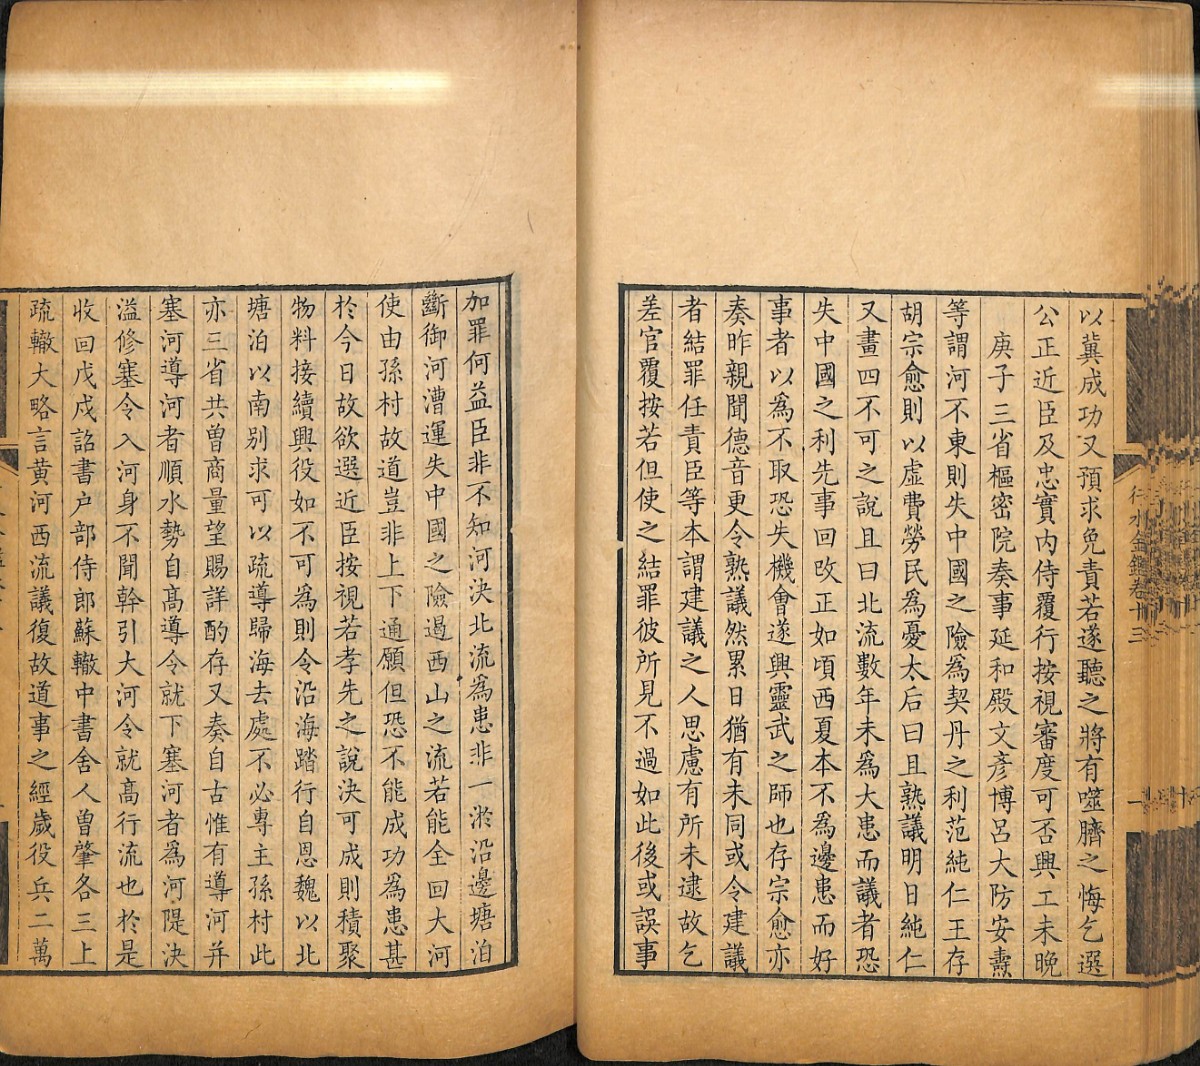 以冀成功又預求免責若遂聽之將有噬臍之悔乞選
公正近臣及忠實內侍覆行按視審度可否興工未晚
庚子三省樞密院奏事延和殿文彥博呂大防安燾
等謂河不東則失中國之險為契丹之利范純仁王存
胡宗愈則以虛費勞民為憂太后曰且熟議明日純仁
又畫四不可之說且曰北流數年未為大患而議者恐
失中國之利先事回改正如頃西夏本不為邊患而好
事者以為不取恐失機會遂興靈武之師也存宗愈亦
奏昨親聞德音更令熟議然累日猶有未同或令建議
者結罪任責臣等本謂建議之人思慮有所未逮故乞
差官覆按若但使之結罪彼所見不過如此後或誤事
加罪何益臣非不知河決北流為患非一淤沿邊塘泊
斷御河漕運失中國之險遏西山之流若能全回大河
使由孫村故道豈非上下通願但恐不能成功為患甚
於今日故欲選近臣按視若孝先之說決可成則積聚
物料接續興役如不可為則令沿海踏行自恩魏以北
塘泊以南别求可以疏導歸海去處不必專主孫村此
亦三省共曾商量望賜詳酌存又奏自古惟有導河并
塞河導河者順水勢自髙導令就下塞河者為河隄決
溢修塞令入河身不聞幹引大河令就髙行流也於是
收回戊戌詔書户部侍郎蘇轍中書舍人曾肇各三上
疏轍大略言黃河西流議復故道事之經歲役兵二萬
行水金鑑卷十三
一